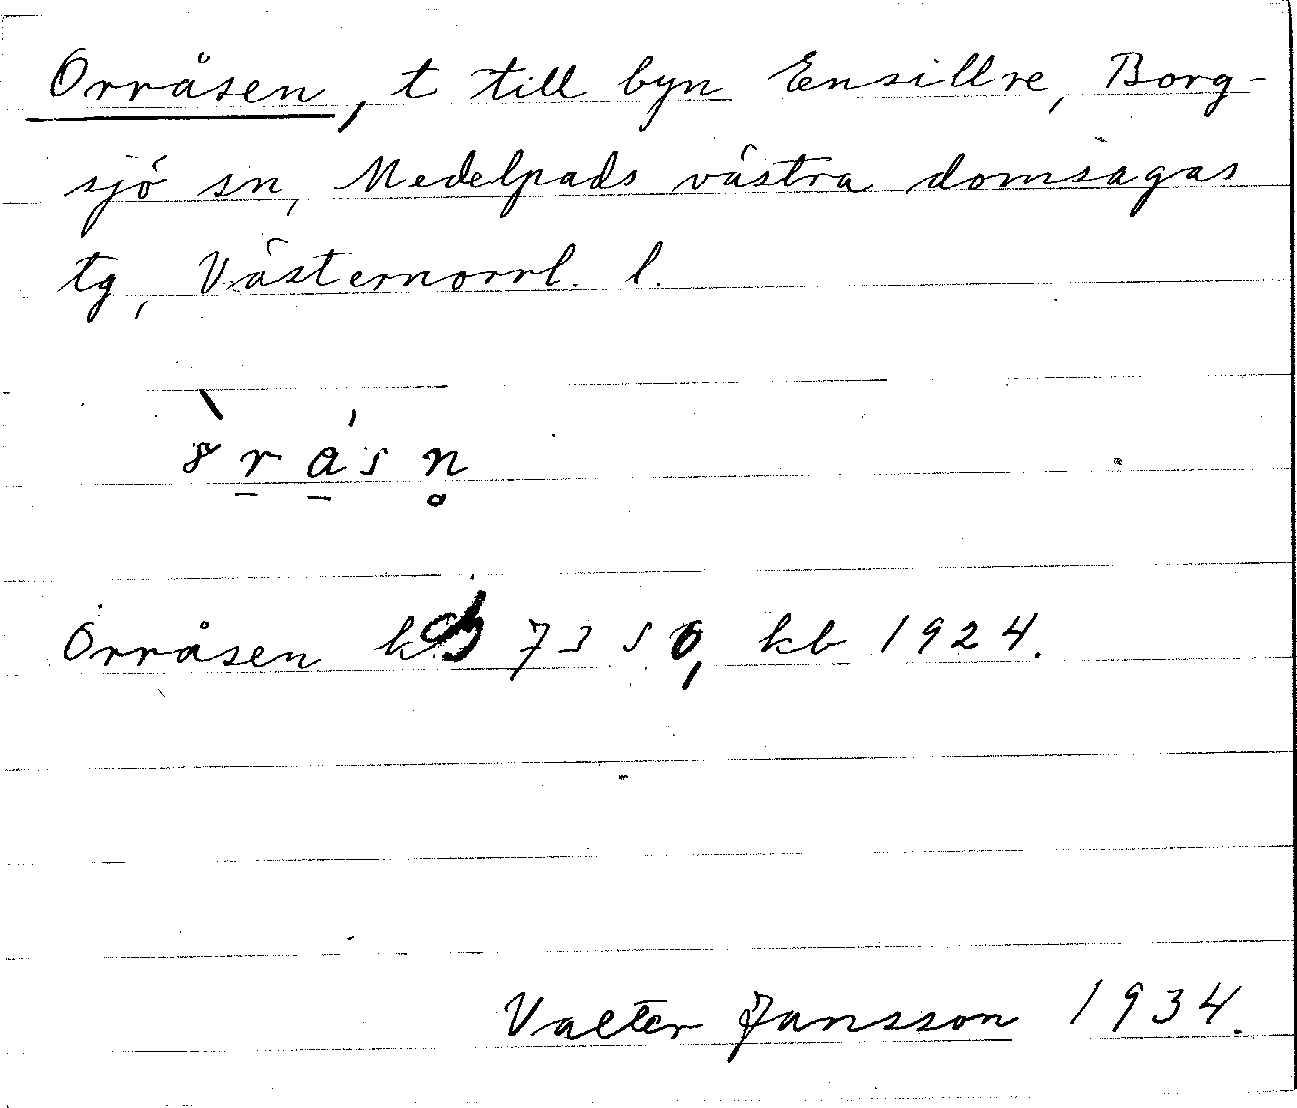 Orråsen, t till byn Ensillre, Borg-
sjö sn, Medelpads västra domsagas
tg, Västernorrl. l.
Orråsen 7350, kb 1924.
Valter Jansson 1934.